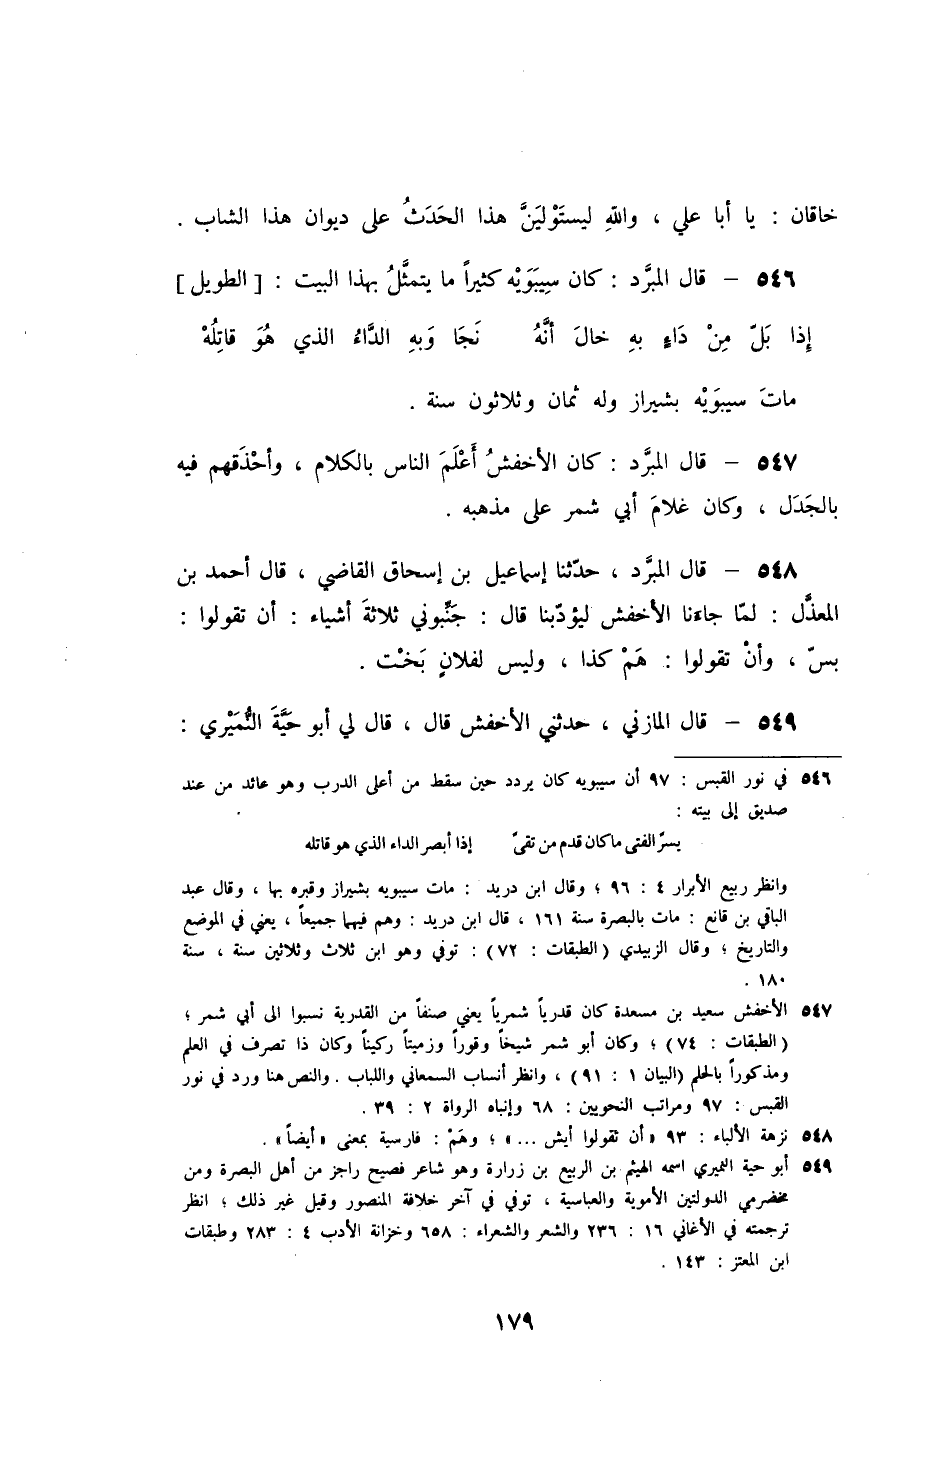 خاقان : يا أبا علي ، واللهِ ليستَوْليَنَّ هذا الحَدَثُ على ديوان هذا الشاب .
٥٤٦ – قال المبرَّد : كان سِيبَوَيْه كثيراً ما يتمثَّلُ بهذا البيت : [ الطويل ]
إِذا بَلّ مِنْ دَاءٍ بهِ خالَ أنَّهُ نَجَا وَبهِ الدَّاءُ الذي هُوَ قاتِلُهْ
ماتَ سيبوَيْه بشيراز وله ثمان وثلاثون سنة .
٥٤٧ – قال المبرَّد : كان الأخفشُ أَعْلَمَ الناس بالكلام ، وأحْذَقهم فيه
بالجَدَل ، وكان غلامَ أبي شمر على مذهبه .
٥٤٨ – قال المبرَّد ، حدّثنا إسماعيل بن إسحاق القاضي ، قال أحمد بن
المعذَّل : لمّا جاءنا الأخفش ليؤدّبنا قال : جَنِّبوني ثلاثةَ أشياء : أن تقولوا :
بسّ ، وأنْ تقولوا : هَمْ كذا ، وليس لفلانٍ بَخْت .
٥٤٩ – قال المازني ، حدثني الأخفش قال ، قال لي أبو حَيَّةَ النُّمَيْري :
٥٤٦ في نور القبس : ٩٧ أن سيبويه كان يردد حين سقط من أعلى الدرب وهو عائد من عند
صديق إلى بيته :
يسرّ الفتى ما كان قدم من تقىً إذا أبصر الداء الذي هو قاتله
وانظر ربيع الأبرار ٤ : ٩٦ ؛ وقال ابن دريد : مات سيبويه بشيراز وقبره بها ، وقال عبد
الباقي بن قانع : مات بالبصرة سنة ١٦١ ، قال ابن دريد : وهم فيهما جميعاً ، يعني في الموضع
والتاريخ ؛ وقال الزبيدي (الطبقات : ٧٢) : توفي وهو ابن ثلاث وثلاثين سنة ، سنة
١٨٠ .
٥٤٧ الأخفش سعيد بن مسعدة كان قدرياً شمرياً يعني صنفاً من القدرية نسبوا الى أبي شمر ؛
(الطبقات : ٧٤) ؛ وكان أبو شمر شيخاً وقوراً وزميتاً ركيناً وكان ذا تصرف في العلم
ومذكوراً بالحلم (البيان ١ : ٩١) ، وانظر أنساب السمعاني واللباب . والنص هنا ورد في نور
القبس : ٩٧ ومراتب النحويين : ٦٨ وإنباه الرواة ٢ : ٣٩ .
٥٤٨ نزهة الألباء : ٩٣ «أن تقولوا أيش ...» ؛ وهَمْ : فارسية بمعنى «أيضاً» .
٥٤٩ أبو حية النميري اسمه الهيثم بن الربيع بن زرارة وهو شاعر فصيح راجز من أهل البصرة ومن
مخضرمي الدولتين الأموية والعباسية ، توفي في آخر خلافة المنصور وقيل غير ذلك ؛ انظر
ترجمته في الأغاني ١٦ : ٢٣٦ والشعر والشعراء : ٦٥٨ وخزانة الأدب ٤ : ٢٨٣ وطبقات
ابن المعتز : ١٤٣ .
١٧٩